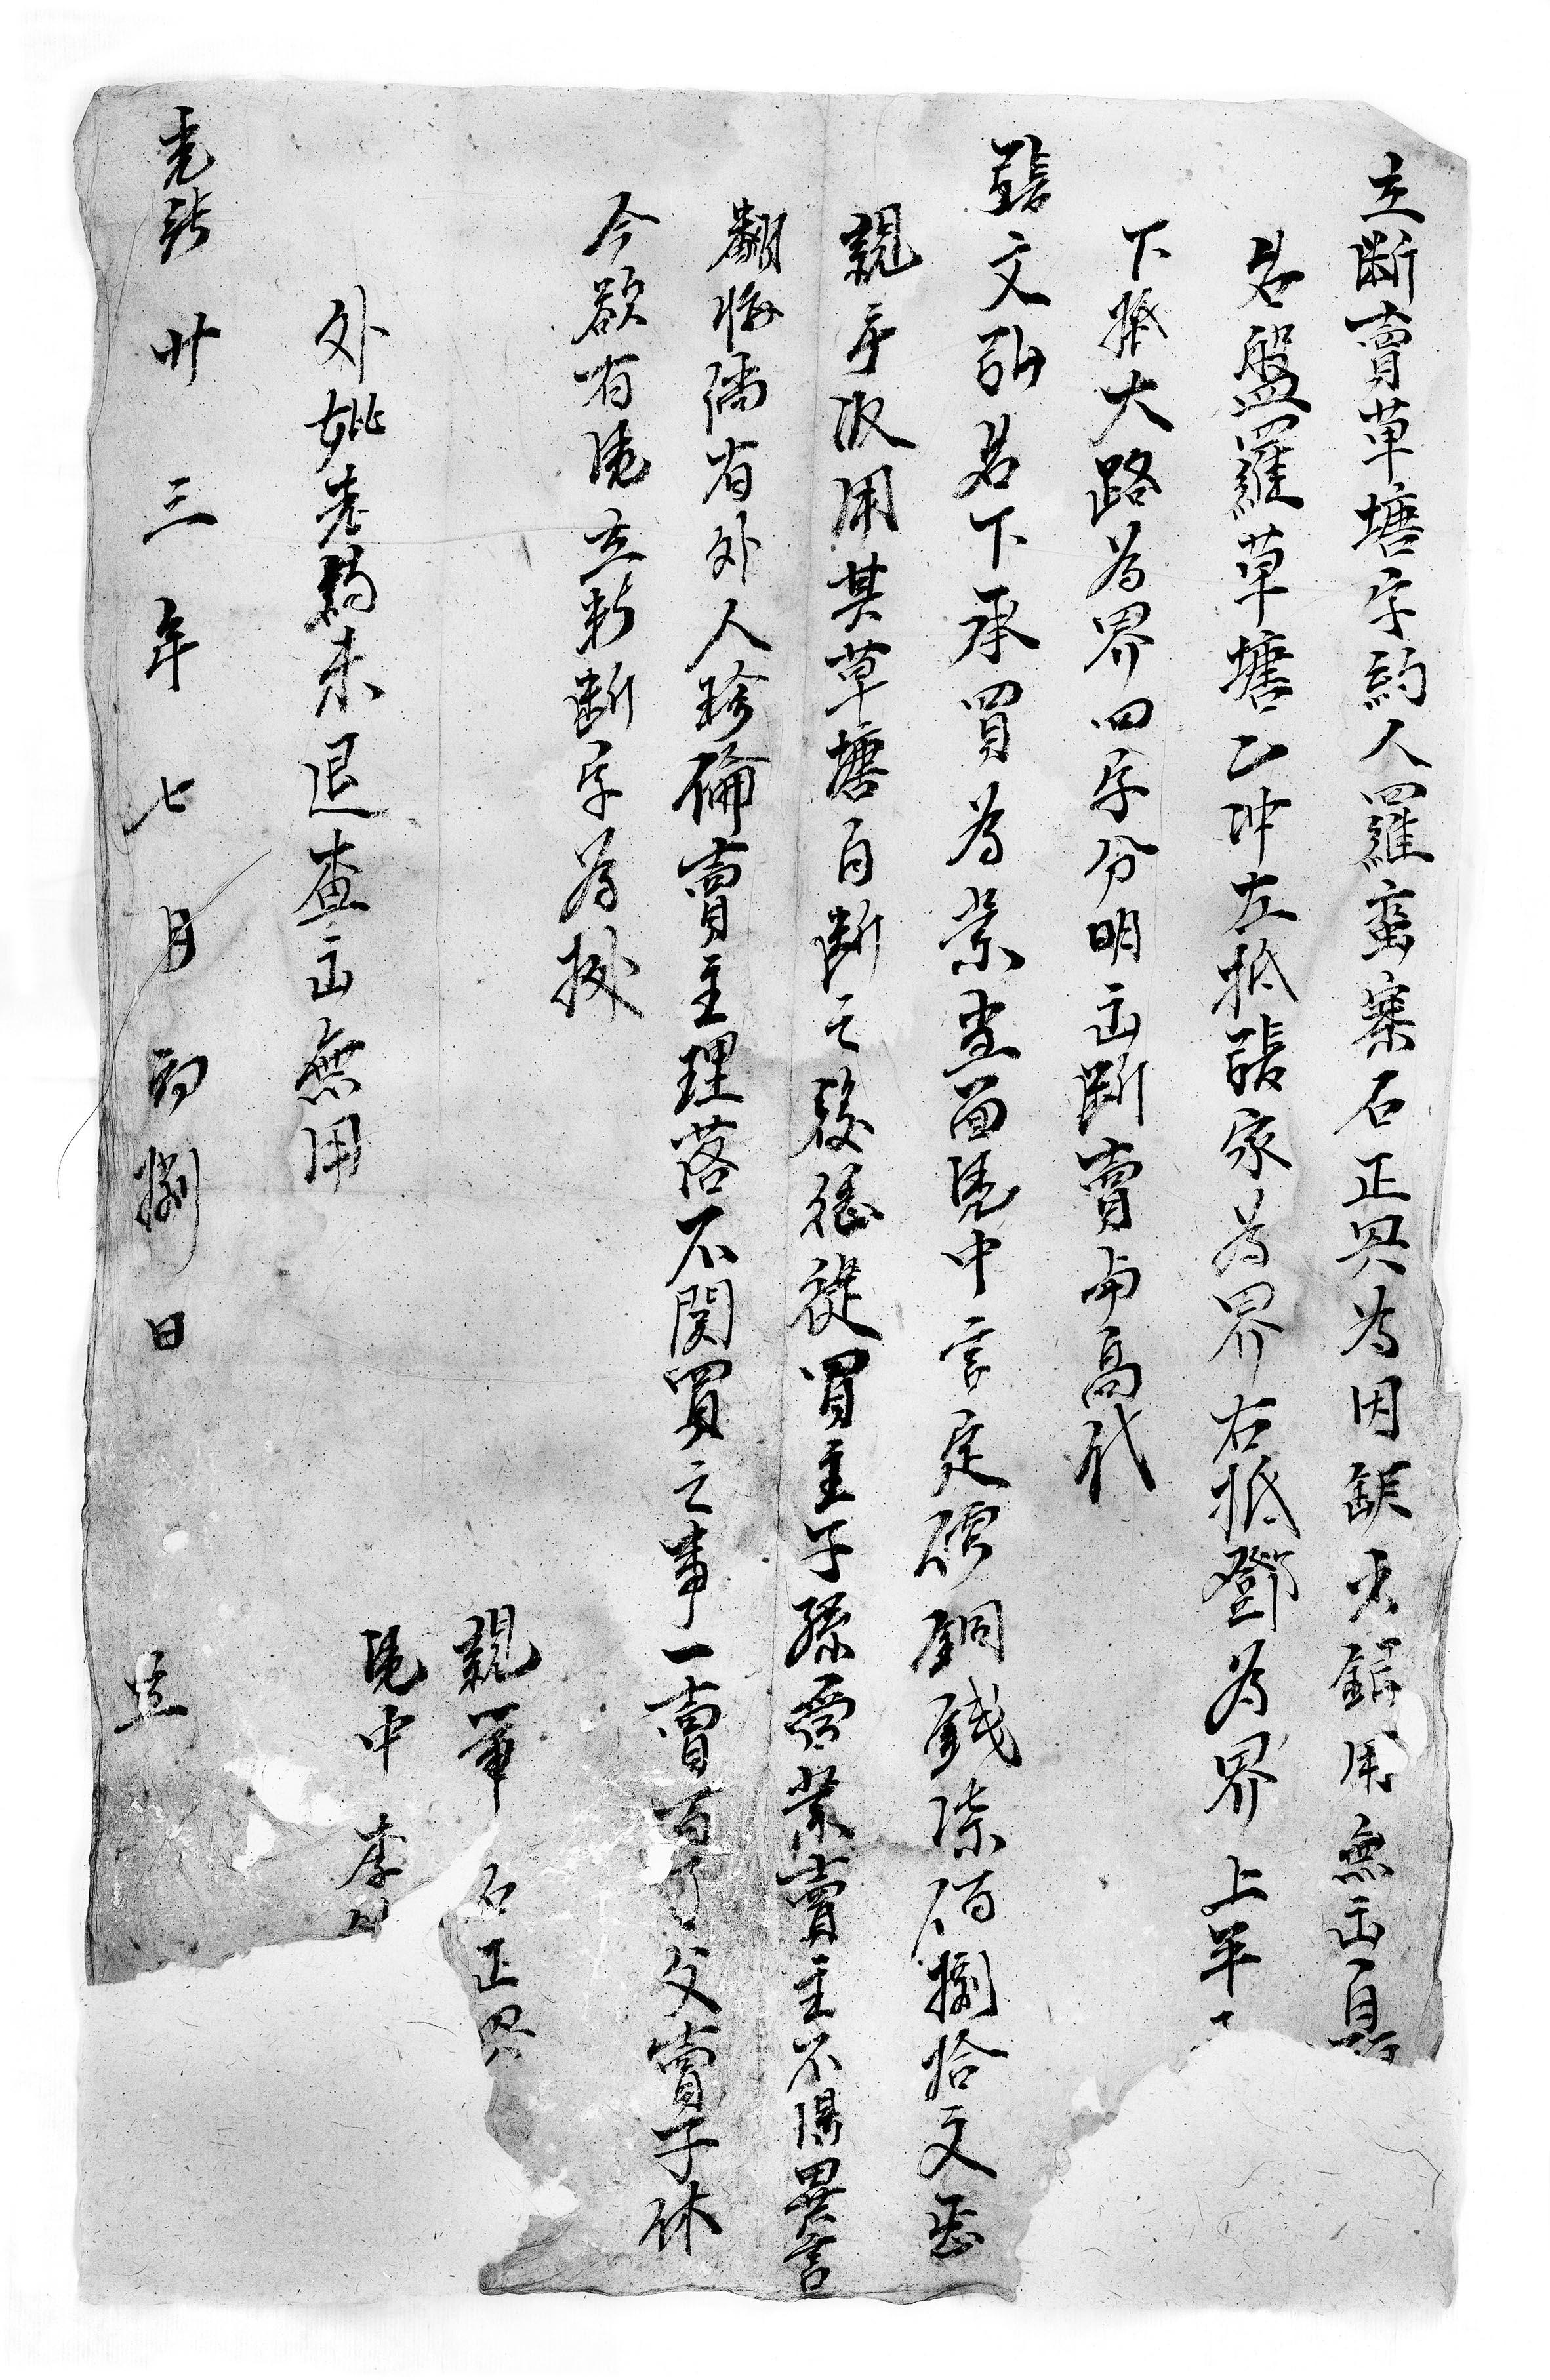 立斷賣草塘字約人羅蛮寨石正興為因缺少錢用無出自願
名盤羅草塘乙冲左抵張家為界右抵鄧為界上平
下抵大路為界四字分明出斷賣與高代
張文弘名下承買為業当面凴中言定價銅錢柒佰捌拾文整
親手收用其草塘自断之後憑從買主子孫管業賣主不得異言
翻悔倘有外人珍倫賣主理落不関買之事一賣百了父賣子休
今欲有凴立此断字為據
親筆 石正興
凴中 李
外姚老契未退查出無用
光緒廿三年七月初捌日 立